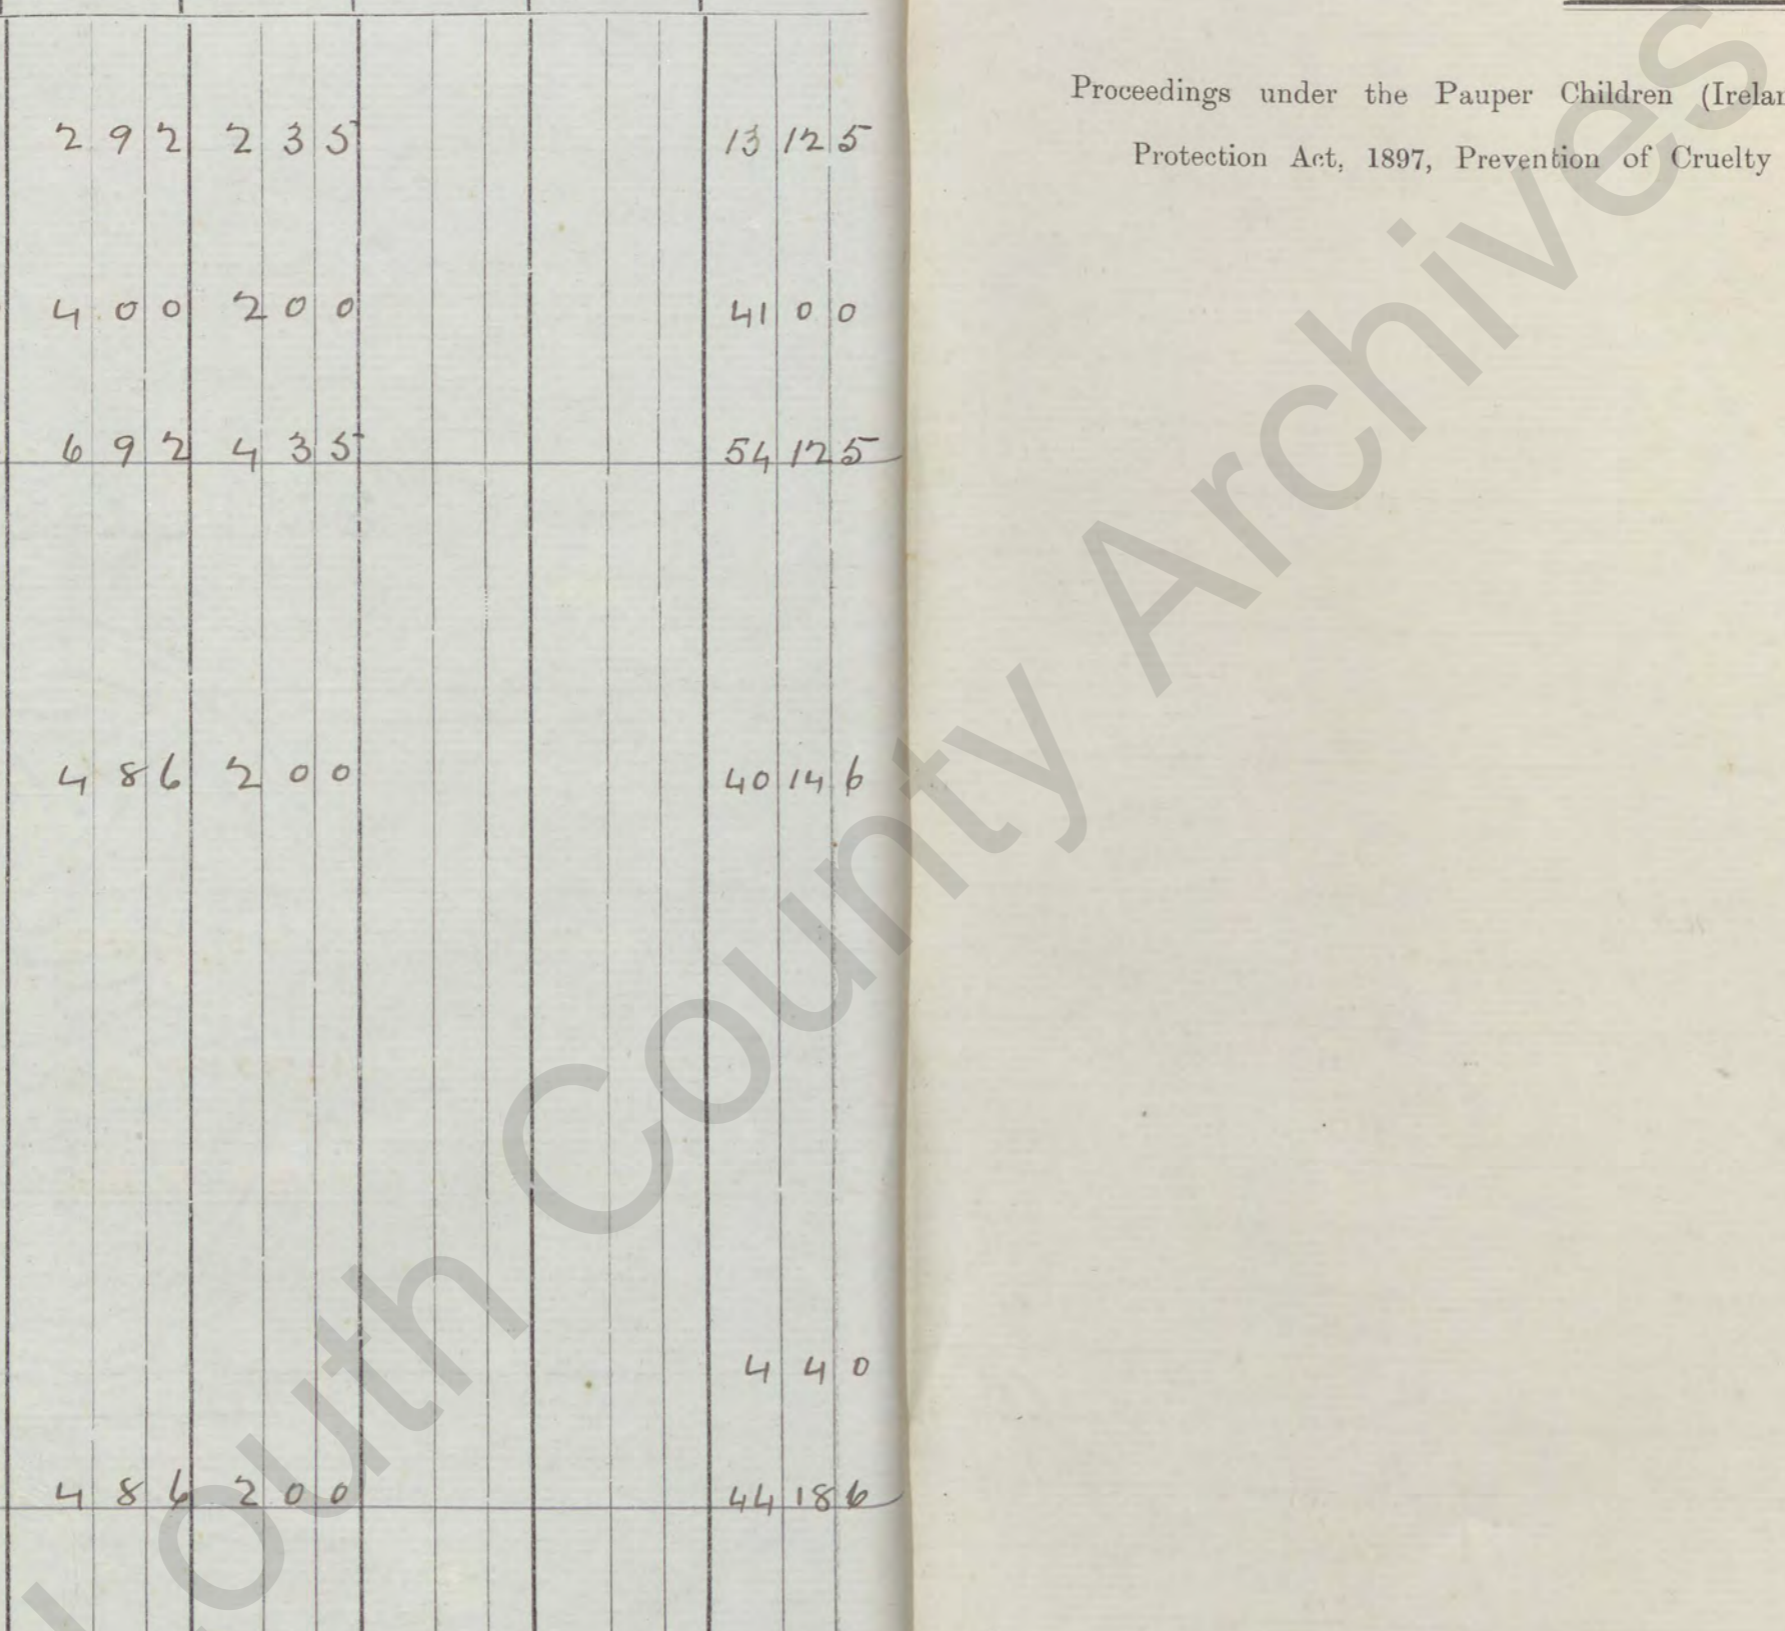 2 9 2 2 3 5 13 12 5
4 0 0 2 0 0 41 0 0
6 9 2 4 3 5 54 12 5
4 8 6 2 0 0 40 14 6
4 4 0
4 8 6 2 0 0 44 18 6
Proceedings under the Pauper Children (Irelan
Protection Act, 1897, Prevention of Cruelty
Louth County Archives